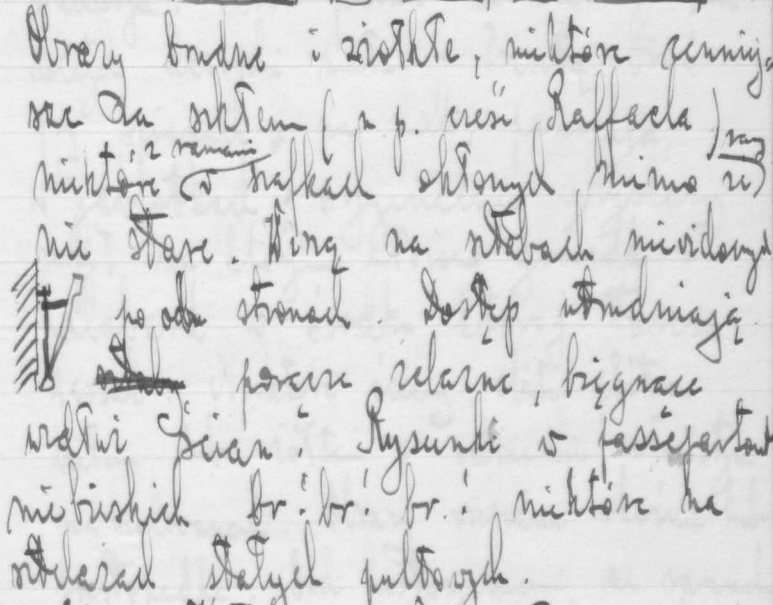 Obrazy brudne i zżółkłe, niektóre cenniej-
sze za szkłem (n p. cześć Raffaela)
niektóre z ramami w szafkach mimo że
nie stare. Wiszą na sztabach niewidocznych
po obu stronach. Dostęp utrudniają
poręcze żelazne, biegnące
wzdłuż ścian! Rysunki w passépartout
niebieskich br! br! br! niektóre na
sztelażach stałych pultowych.